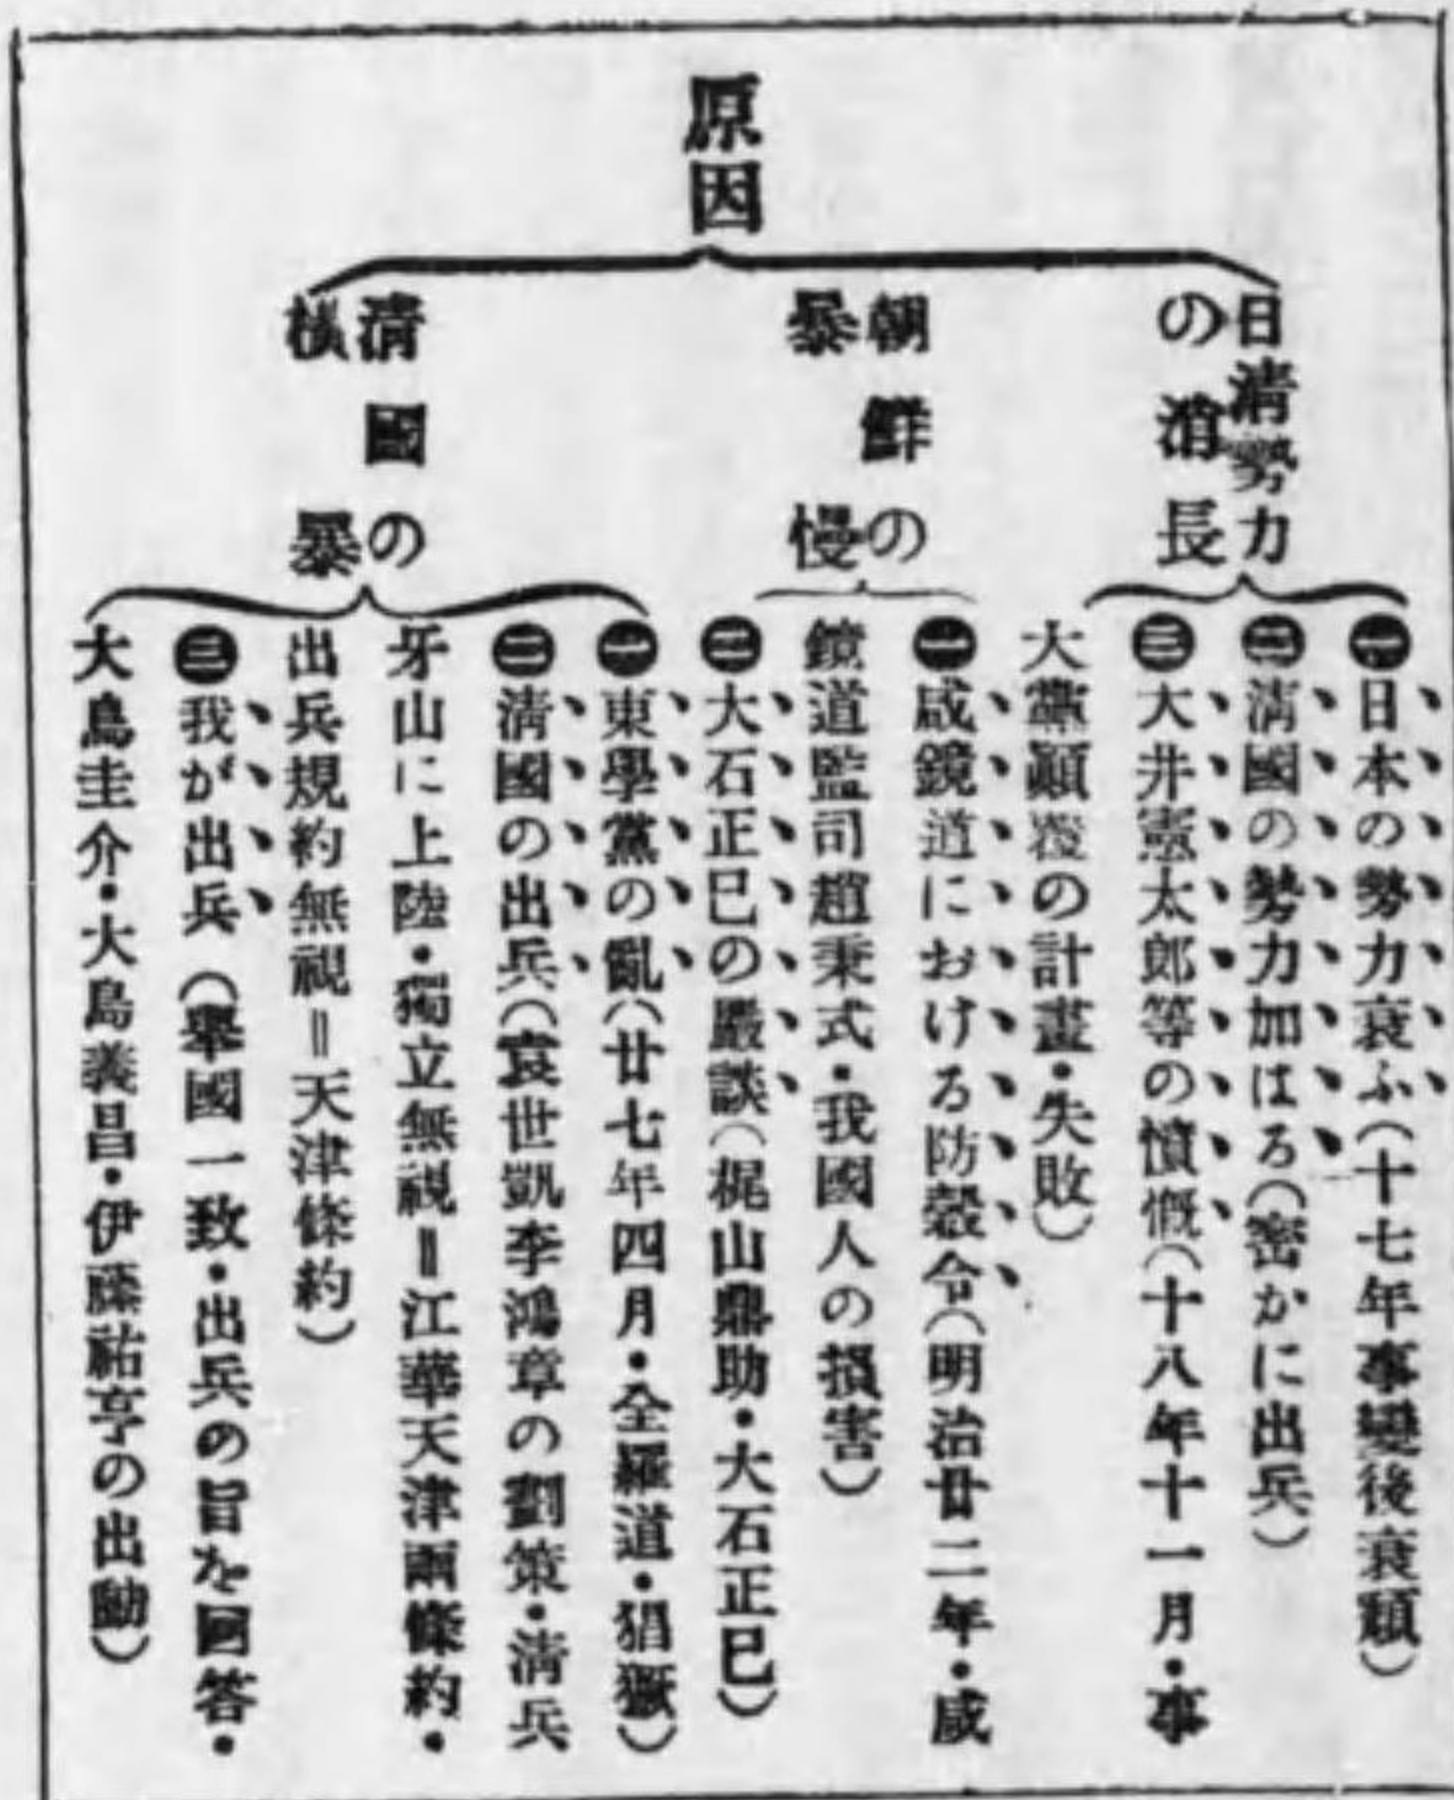 原因
日清勢力
の消長
㊀日本の勢力衰ふ(十七年事變後衰頽)
㊁清國の勢力加はる(密かに出兵)
㊂大井憲太郎等の憤慨(十八年十一月・事
大黨顚覆の計畫・失敗)
朝鮮の
暴慢
㊀咸鏡道における防穀令(明治廿二年・咸
鏡道監司趙秉式・我國人の損害)
㊁大石正巳の嚴談(梶山鼎助・大石正巳)
清國の
横暴
㊀東學黨の亂(廿七年四月・全羅道・猖獗)
㊁清國の出兵(袁世凱李鴻章の劃策・清兵
牙山に上陸・獨立無視=江華天津兩條約・
出兵規約無視=天津條約)
㊂我が出兵(擧國一致・出兵の旨を回答・
大鳥圭介・大島義昌・伊藤祐亨の出動)